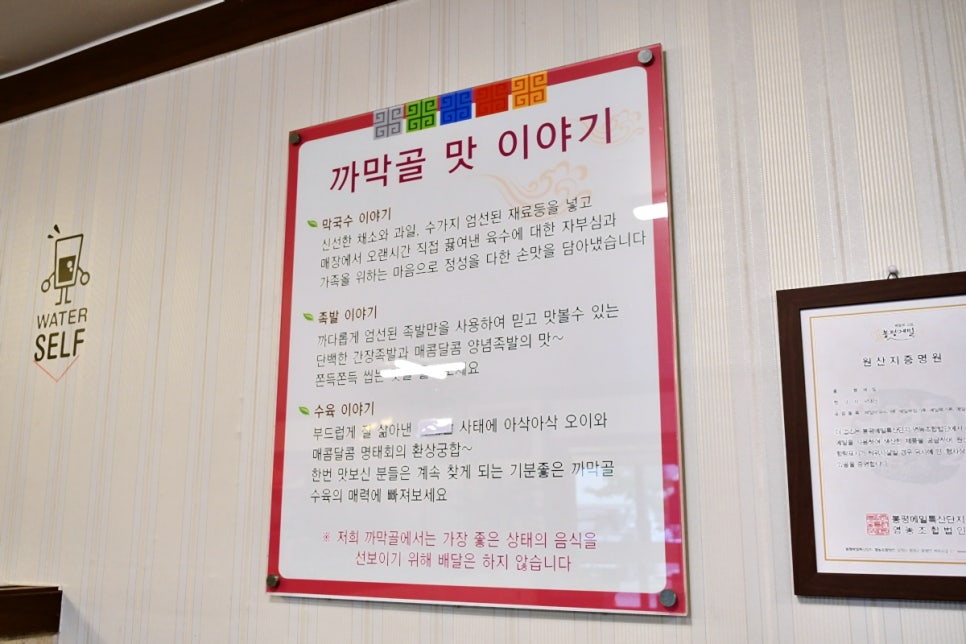 까막골 맛 이야기
막국수 이야기
신선한 채소와 과일, 수가지 엄선된 재료등을 넣고
매장에서 오랜시간 직접 끓여낸 육수에 대한 자부심과
가족을 위하는 마음으로 정성을 다한 손맛을 담아냈습니다
족발 이야기
까다롭게 엄선된 족발만을 사용하여 믿고 맛볼수 있는
단백한 간장족발과 매콤달콤 양념족발의 맛~
쫀득쫀득 씹는
수육 이야기
부드럽게 잘 삶아낸 사태에 아삭아삭 오이와
매콤달콤 명태회의 환상궁합~
한번 맛보신 분들은 계속 찾게 되는 기분좋은 까막골
수육의 매력에 빠져보세요
※ 저희 까막골에서는 가장 좋은 상태의 음식을
선보이기 위해 배달은 하지 않습니다
WATER
SELF
원산지증명원
봉평메밀특산단지
영농조합법인